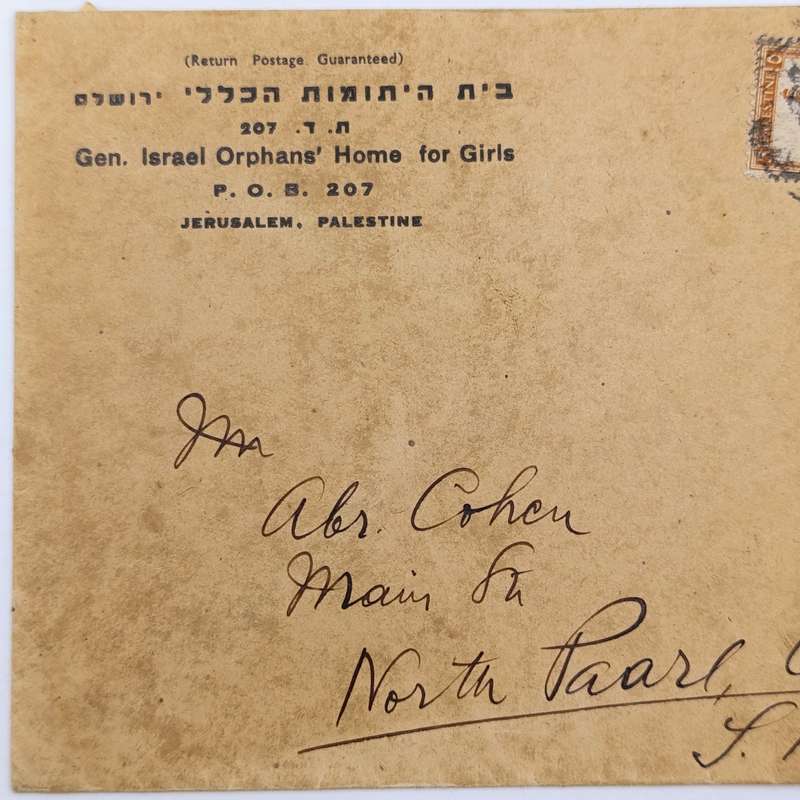 (Return Postage Guaranteed)
בית היתומות הכללי ירושלם
ת. ד. 207
Gen. Israel Orphans' Home for Girls
P. O. B. 207
JERUSALEM, PALESTINE
Mr
Abr. Cohen
Main St
North Paarl,
S.